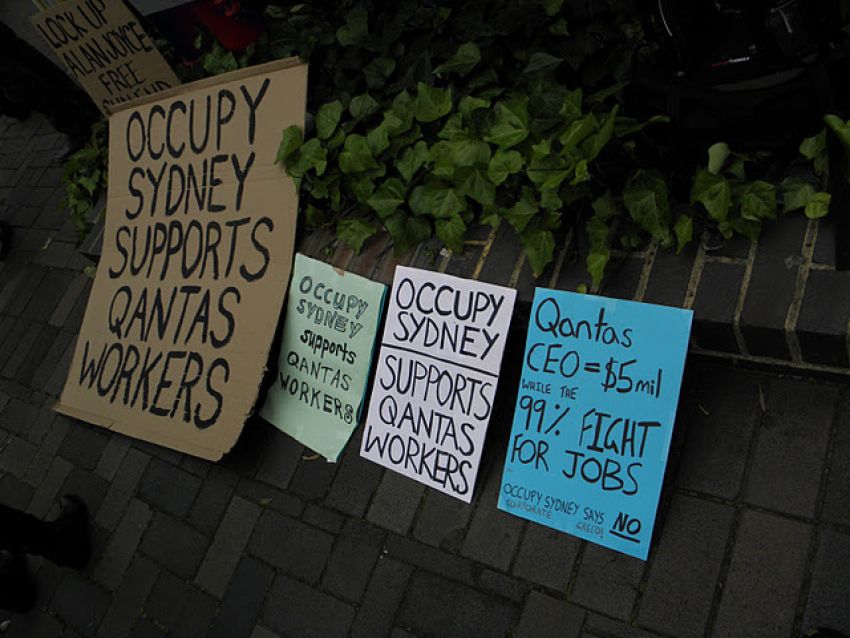 LOCK UP
ALAN JOYCE
FREE
OCCUPY
SYDNEY
SUPPORTS
QANTAS
WORKERS
OCCUPY
SYDNEY
supports
QANTAS
WORKERS
OCCUPY
SYDNEY
SUPPORTS
QANTAS
WORKERS
Qantas
CEO = $5mil
WHILE THE
99% FIGHT
FOR JOBS
OCCUPY SYDNEY SAYS NO
CORPORATE GREED!